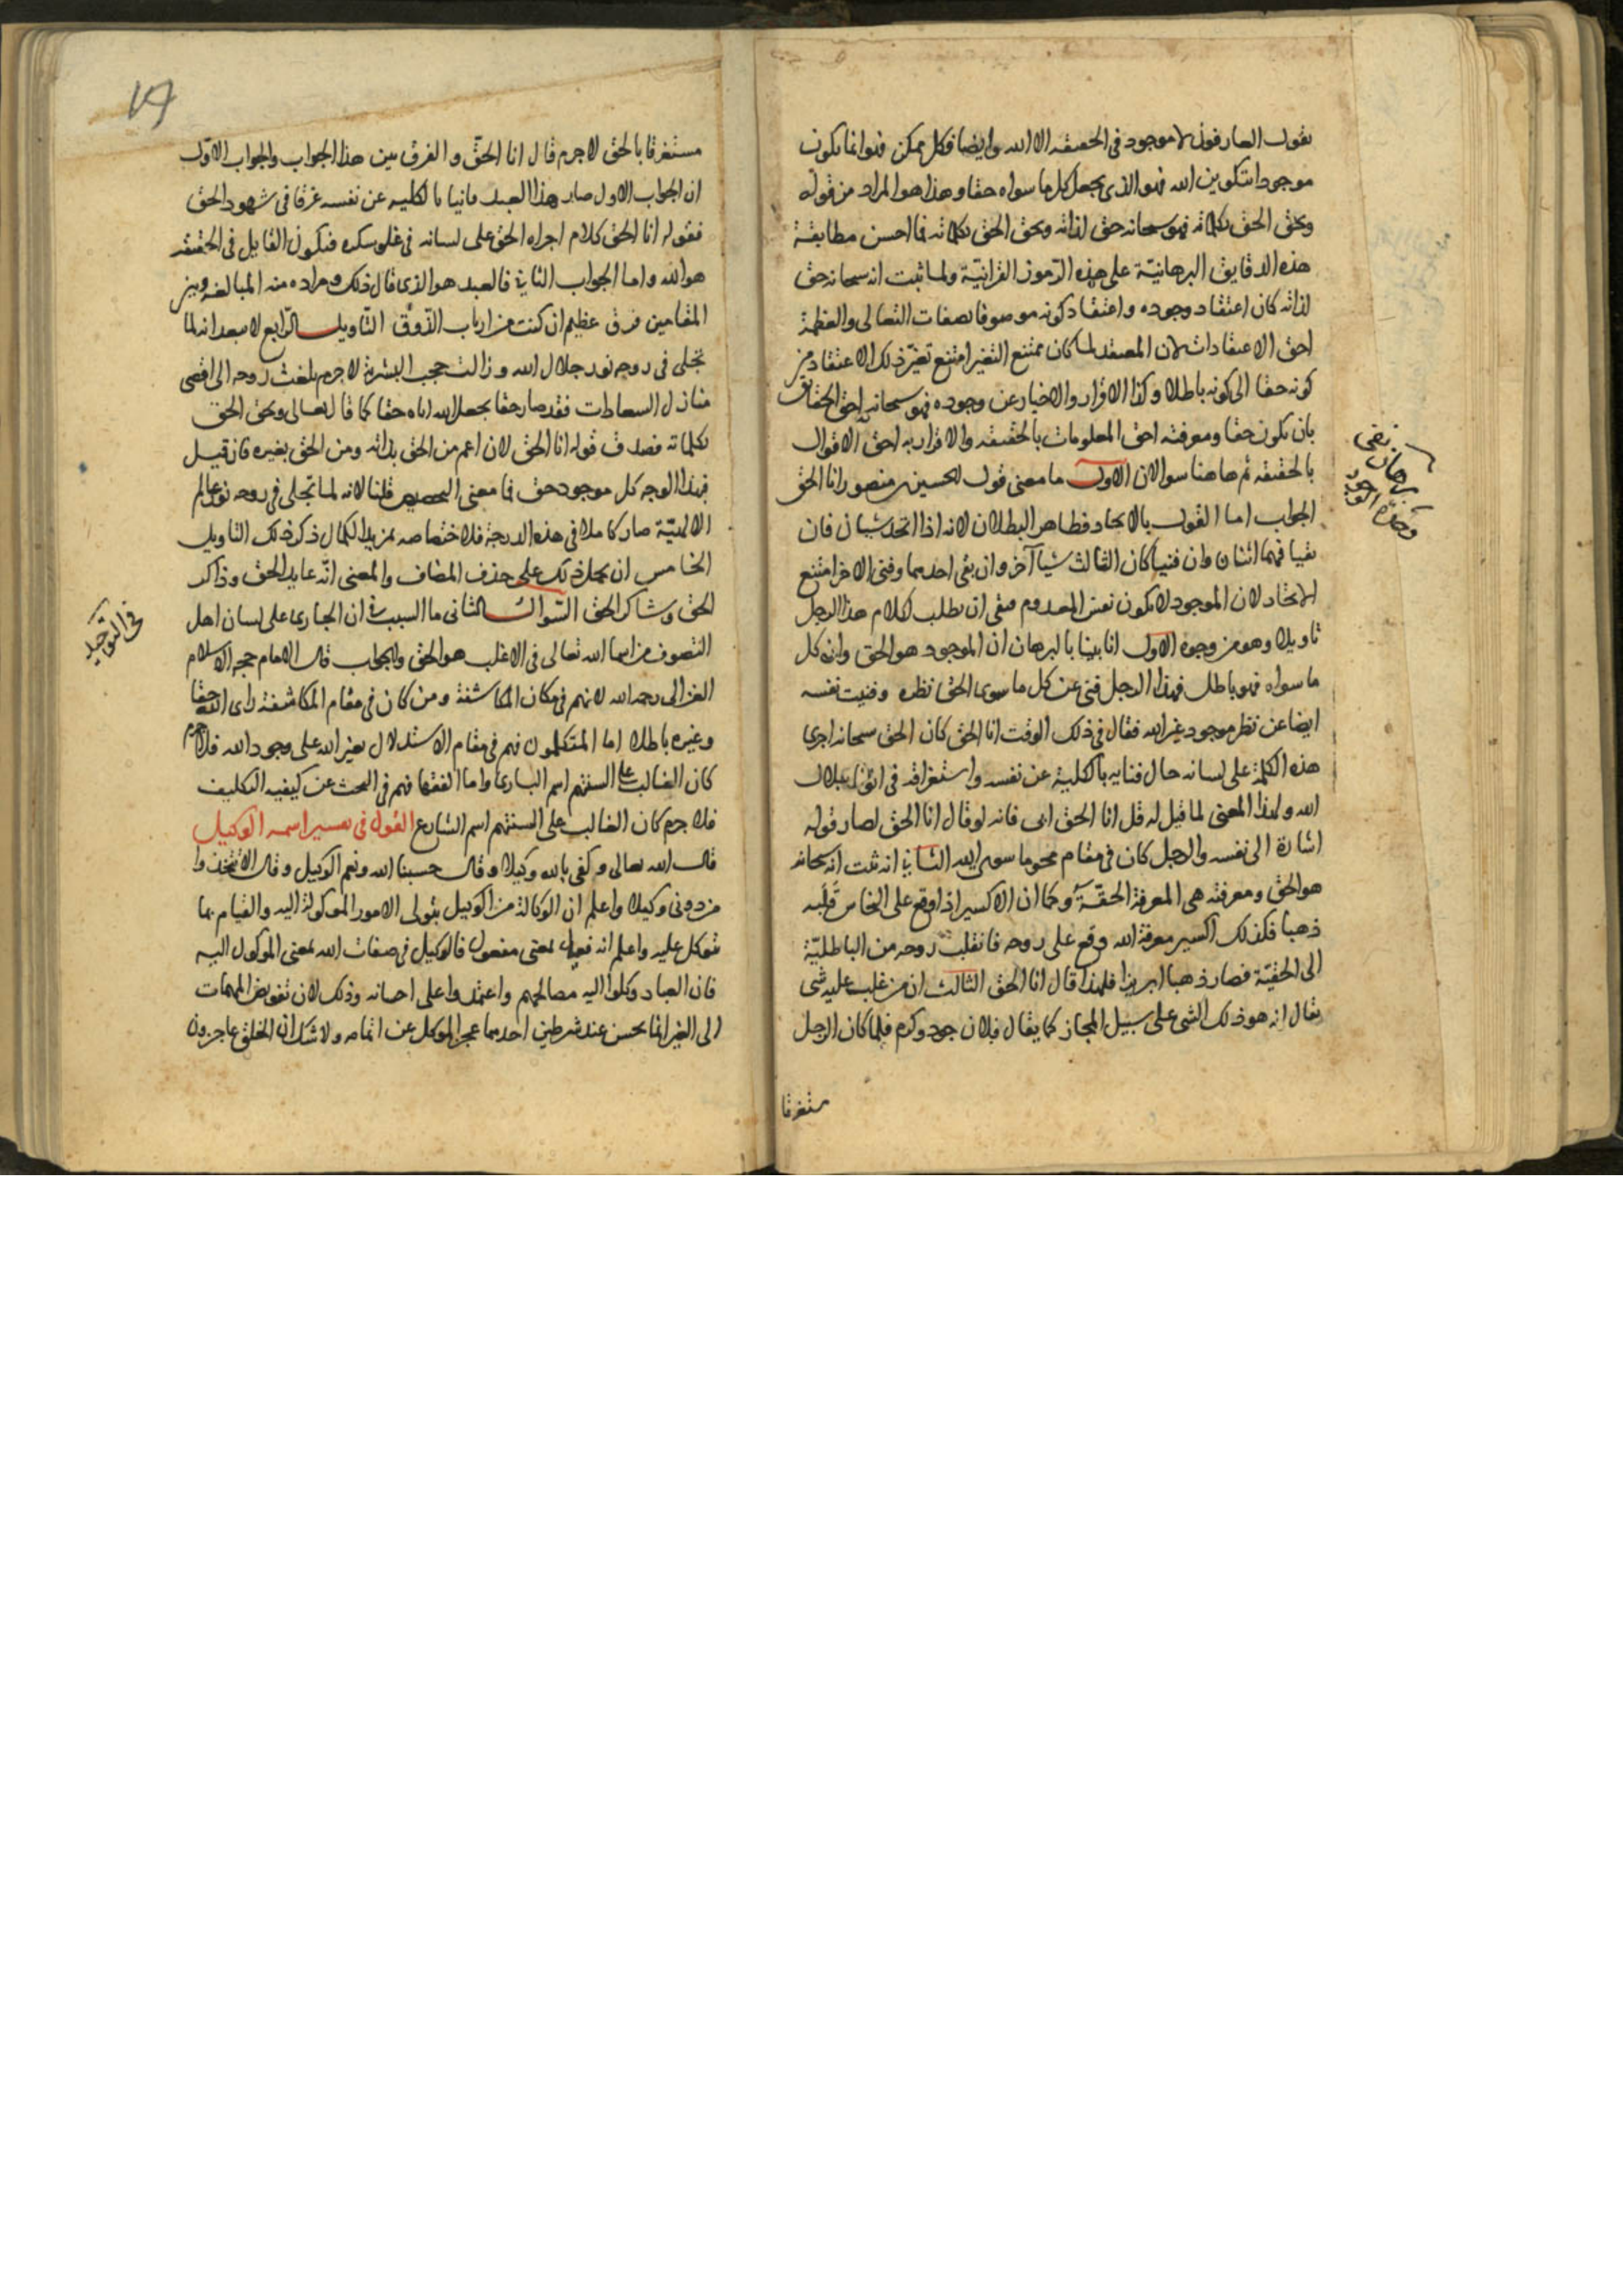 يقول العارفون لا موجود في الحقيقه الا الله وايضا فكل ممكن فهو انما يكون
موجودا بتكوين الله فهو الذي يجعل كل ما سواه حقا وهذا هو المراد من قوله
ويحق الحق بكلماته فهو سبحانه حق لذاته ويحق الحق بكلماته فما احسن مطابقة
هذه الدقايق البرهانيّة على هذه الرّموز القرانيّة ولما ثبت انه سبحانه حق
لذاته كان اعتقاد وجوده واعتقاد كونه موصوفا بصفات التعالى والعظمة
احق الاعتقادات لان المعتقد لما كان ممتنع التغير امتنع تغيّر ذلك الاعتقاد من
كونه حقا الى كونه باطلا وكذا الاقرار والاخبار عن وجوده فهو سبحانه احق الحقايق
بان يكون حقا ومعرفته احق المعلومات بالحقيقه والاقرار به احق الاقوال
بالحقيقه ثم هاهنا سوالان الاول ما معنى قول الحسين بن منصور انا الحق
الجواب اما القول بالاتحاد فظاهر البطلان لانه اذا اتحد شيان فان
بقيا فهما اثنان وان فنيا كان الثالث شيا آخر وان بقى احدهما وفنى الاخر امتنع
الاتحاد لان الموجود لا يكون نفس المعدوم فبقى ان يطلب لكلام هذا الرجل
تاويلا وهو من وجوه الاول انا بينا بالبرهان ان الموجود هو الحق وان كل
ما سواه فهو باطل فهذا الرجل فنى عن كل ما سوى الحق نظره وفنيت نفسه
ايضا عن نظر موجود غير الله فقال في ذلك الوقت انا الحق كان الحق سبحانه اجرى
هذه الكلمة على لسانه حال فنايه بالكلية عن نفسه واستغراقه في انوار جلال
الله ولهذا المعنى لما قيل له قل انا الحق ابى فانه لو قال انا الحق لصار قوله
اشارة الى نفسه والرجل كان في مقام محو ما سوى الله الثاني انه ثبت انه سبحانه
هو الحق ومعرفته هي المعرفة الحقّة وكما ان الاكسير اذا وقع على النحاس قلبه
ذهبا فكذلك اكسير معرفة الله وقع على روحه فانقلب روحه من الباطليّة
الى الحقيّة فصار ذهبا ابريزا فلهذا قال انا الحق الثالث ان من غلب عليه شى
يقال انه هو ذلك الشى على سبيل المجاز كما يقال فلان جود وكرم فلما كان الرجل
مستغرقا
برهان نفي
وحدة الوجود
مستغرقا بالحق لا جرم قال انا الحق والفرق بين هذا الجواب والجواب الاول
ان الجواب الاول صار هذا العبد فانيا بالكليه عن نفسه غرقا في شهود الحق
فقوله انا الحق كلام اجراه الحق على لسانه في غلو سكره فيكون القايل في الحقيقه
هو الله واما الجواب الثاني فالعبد هو الذي قال ذلك ومراده منه المبالغه وبين
المقامين فرق عظيم ان كنت من ارباب الذّوق التّاويل الرّابع لا يبعد انه لما
تجلى في روحه نور جلال الله وزالت حجب البشرية لا جرم بلغت روحه الى اقصى
منازل السعادات فقد صار حقا بجعل الله اياه حقا كما قال تعالى ويحق الحق
بكلماته فصدق قوله انا الحق لان اعم من الحق بذاته ومن الحق بغيره فان قيل
فبهذا الوجه كل موجود حق فما معنى التخصيص قلنا لانه لما تجلى في روحه نور عالم
الالهيّة صار كاملا في هذه الدرجة فلاختصاصه بمزيد الكمال ذكر ذلك التاويل
الخامس ان يحمل ذلك على حذف المضاف والمعنى انّه عابد الحق وذاكر
الحق وشاكر الحق السّوال الثاني ما السبب في ان الجاري على لسان اهل
التصوف من اسما الله تعالى في الاغلب هو الحق والجواب قال الامام حجه الاسلام
الغزالى رحمه الله لانهم في مكان المكاشفة ومن كان في مقام المكاشفة راى الله حقا
وغيره باطلا اما المتكلمون فهم في مقام الاستدلال بغير الله على وجود الله فلا جرم
كان الغالب على السنتهم اسم الباري واما الفقها فهم في البحث عن كيفيه التكليف
فلا جرم كان الغالب على السنتهم اسم الشارع القول في تفسير اسمه الوكيل
قال الله تعالى وكفى بالله وكيلا وقال حسبنا الله ونعم الوكيل وقال الا تتخذوا
من دوني وكيلا واعلم ان الوكالة من الوكيل يتولى الامور الموكولة اليه والقيام بما
توكل عليه واعلم انه فعيل بمعنى مفعول فالوكيل في صفات الله بمعنى الموكول اليه
فان العباد وكلوا اليه مصالحهم واعتمدوا على احسانه وذلك لان تفويض المهمات
الى الغير انما يحسن عند شرطين احدهما عجز الموكل عن اتمامه ولا شك ان الخلق عاجزون
في التوحيد